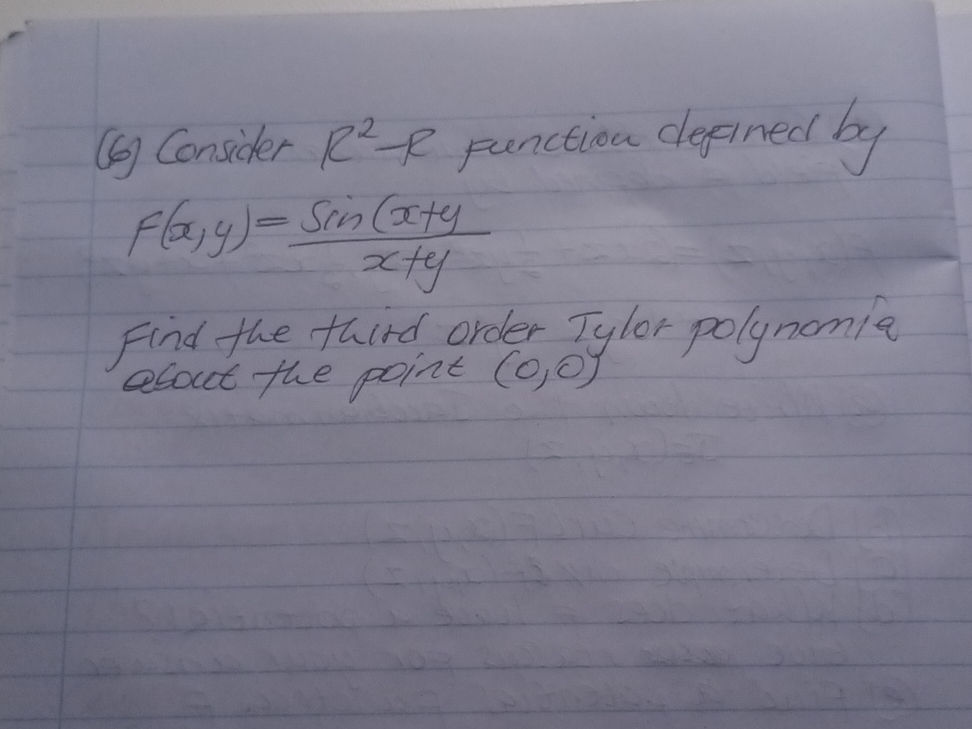 (6) Consider R²-R function defined by
F(x,y)= Sin(x+y
x+y
Find the third order Tylor polynomia
about the point (0,0)